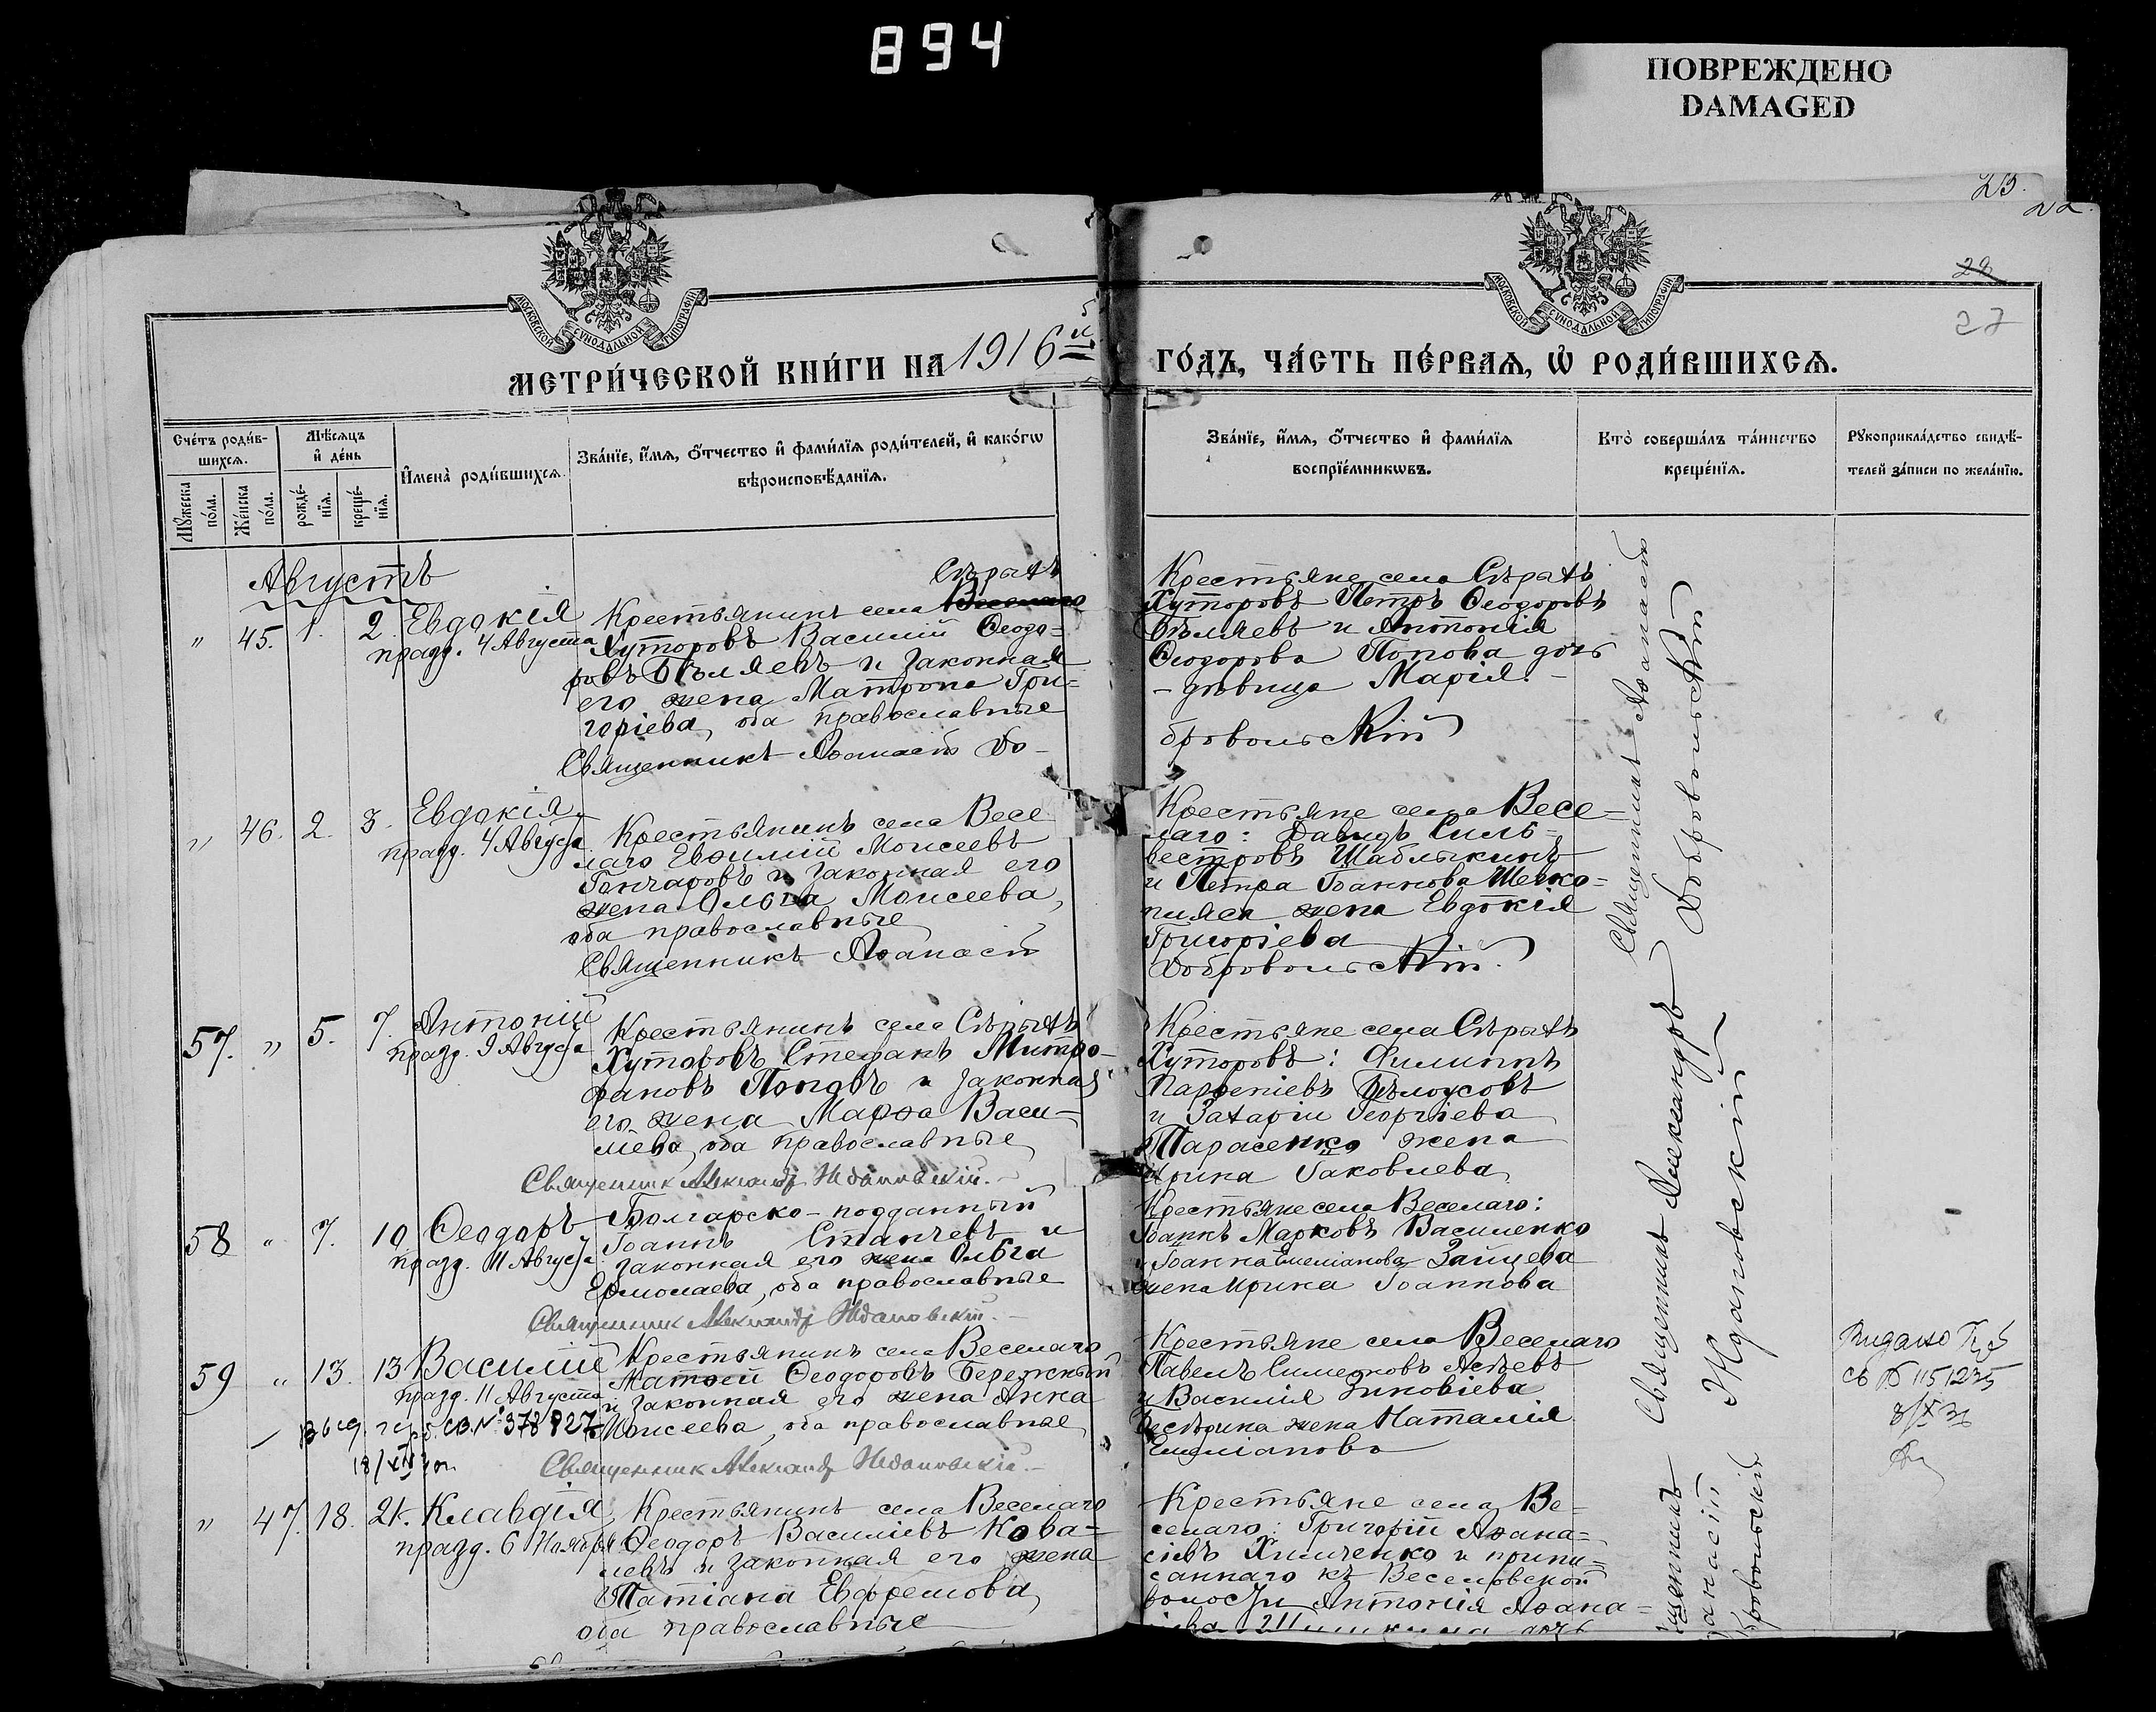 894
ПОВРЕЖДЕНО
DAMAGED
23.
22.
28
27
МОСКОВСКОЙ СУНОДАЛЬНОЙ ТИПОГРАФІИ
МОСКОВСКОЙ СУНОДАЛЬНОЙ ТИПОГРАФІИ
МЕТРИ́ЧЕСКОЙ КНИ́ГИ НА 1916й
ГО́ДЪ, ЧА́СТЬ ПЕ́РВАѦ, Ѡ҆ РОДИ́ВШИХСѦ.
Сче́тъ роди́в-
шихсѧ.
Мꙋ́жеска по́ла.
Же́нска по́ла.
Мѣ́сѧцъ
и҆ де́нь
рожде́-
нїѧ.
креще́-
нїѧ.
И҆мена̀ роди́вшихсѧ.
Зва́нїе, и҆́мѧ, ѻ҆́тчество и҆ фами́лїѧ роди́телей, и҆ како́гѡ
вѣроисповѣ́данїѧ.
Зва́нїе, и҆́мѧ, ѻ҆́тчество и҆ фами́лїѧ
воспрїе́мникѡвъ.
Кто̀ соверша́лъ та́инство
креще́нїѧ.
Рꙋкоприкла́дство свидѣ́-
телей за́писи по жела́нїю.
Августъ
" 45. 1. 2. Евдокія
празд. 4 Августа
Сѣрыхъ
Крестьянинъ села Веселаго
Хуторовъ Василій Ѳеодо-
ровъ Бѣляевъ и законная
его жена Матрона Гри-
горіева, оба православные
Священникъ Аѳанасій До-
Крестьяне села Сѣрыхъ
Хуторовъ Петръ Ѳеодоровъ
Бѣляевъ и Антонія
Ѳеодорова Попова дочь
- дѣвица Марія. -
бровольскій
Священникъ Аѳанасій
Добровольскій
" 46. 2. 3. Евдокія
празд. 4 Августа
Крестьянинъ села Весе-
лаго Евѳимій Моисеевъ
Гончаровъ и законная его
жена Ольга Моисеева,
оба православные
Священникъ Аѳанасій
Крестьяне села Весе-
лаго: Давидъ Силь-
вестровъ Шаблыкинъ
и Петра Іоаннова
жена Евдокія
Григоріева
Добровольскій.
57. " 5. 7. Антоній
празд. 9 Августа
Крестьянинъ села Сѣрыхъ
Хуторовъ Стефанъ Митро-
фановъ Поповъ и законная
его жена Марѳа Васи-
лiева, оба православные
Священник Александр Ждановскій. -
Крестьяне села Сѣрыхъ
Хуторовъ: Филиппъ
Парѳеніевъ Бѣлоусовъ
и Захаріи Георгіева
Тарасенко жена
Ирина Іаковлева
Священникъ Александръ
Ждановскій
58 " 7. 10 Ѳеодоръ
празд. 11 Августа
Болгарско-подданный
Іоаннъ Станчевъ и
законная его жена Ольга
Ермолаева, оба православные
Священник Александр Ждановскій. -
Крестьяне села Веселаго:
Іоаннъ Марковъ Василенко
и Іоанна Емеліанова Зайцева
жена Ирина Іоаннова
59 " 13. 13 Василій
празд. 11 Августа
Крестьянинъ села Веселаго
Матѳей Ѳеодоровъ Бережный
и законная его жена Анна
Моисеева, оба православные
Священник Александр Ждановскій. -
св. № 378827
Крестьяне села Веселаго
Павелъ Симеоновъ
и Василія Зиновіева
жена Наталія
Емеліанова
8/X 36
" 47. 18. 21. Клавдія
празд. 6 Ноября
Крестьянинъ села Веселаго
Ѳеодоръ Василіевъ Кова-
левъ и законная его жена
Татіана Евфремова,
оба православные
Крестьяне села Ве-
селаго: Григорій Аѳана-
сіевъ Химченко и припи-
саннаго къ Веселовской
волости Антонія Аѳана-
дочь